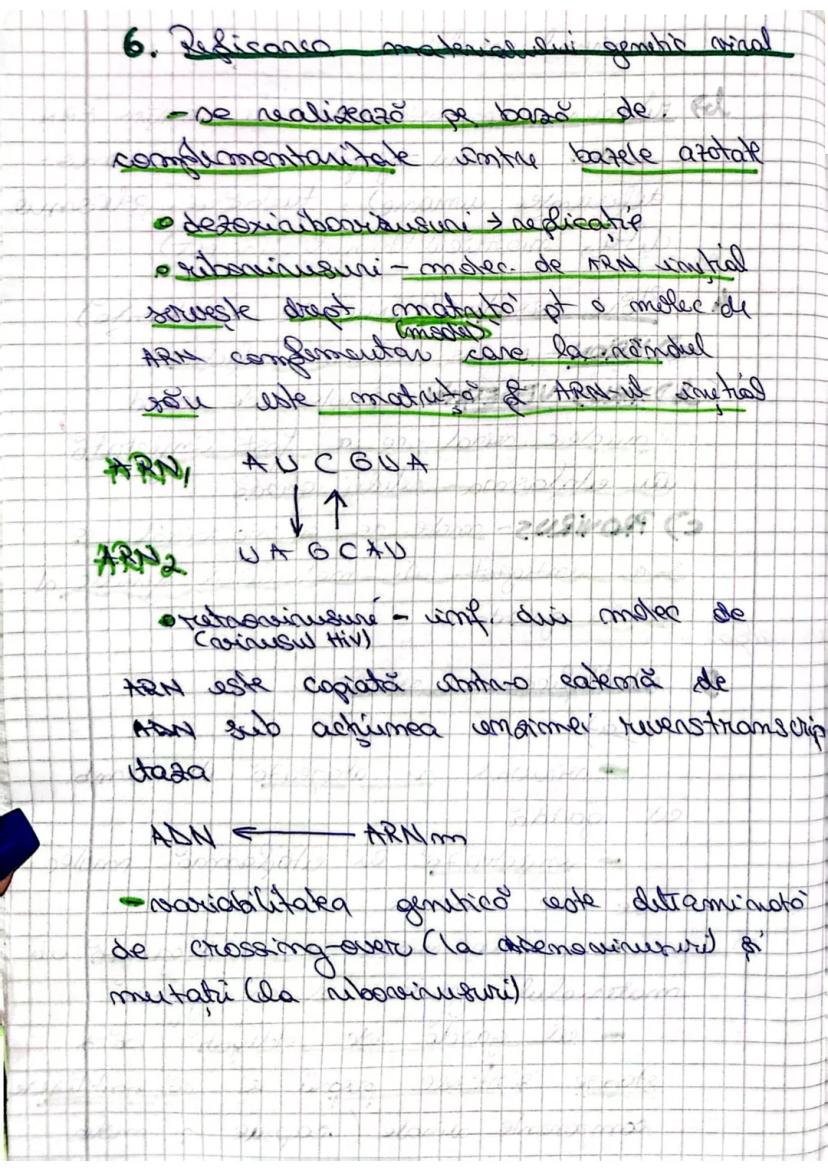 6. Reficarea materialului genetic viral
- se realizează pe bază de
complementaritate între bazele azotate
• dezoxiribovirusuri → replicație
• ribovirusuri - molec. de ARN inițial
servește drept matriță pt o molec de
(model)
ARN complementar care la rândul
său este matriță pt ARN-ul inițial
ARN1 A U C G U A
ARN2 U A G C A U
• retrovirusuri - inf. din molec de
(virusul HIV)
ARN este copiată într-o catenă de
ADN sub acțiunea enzimei revenstranscrip
taza
ADN ← ARNm
- variabilitatea genetică este determinată
de crossing-over (la adenovirusuri) și
mutații (la ribovirusuri)